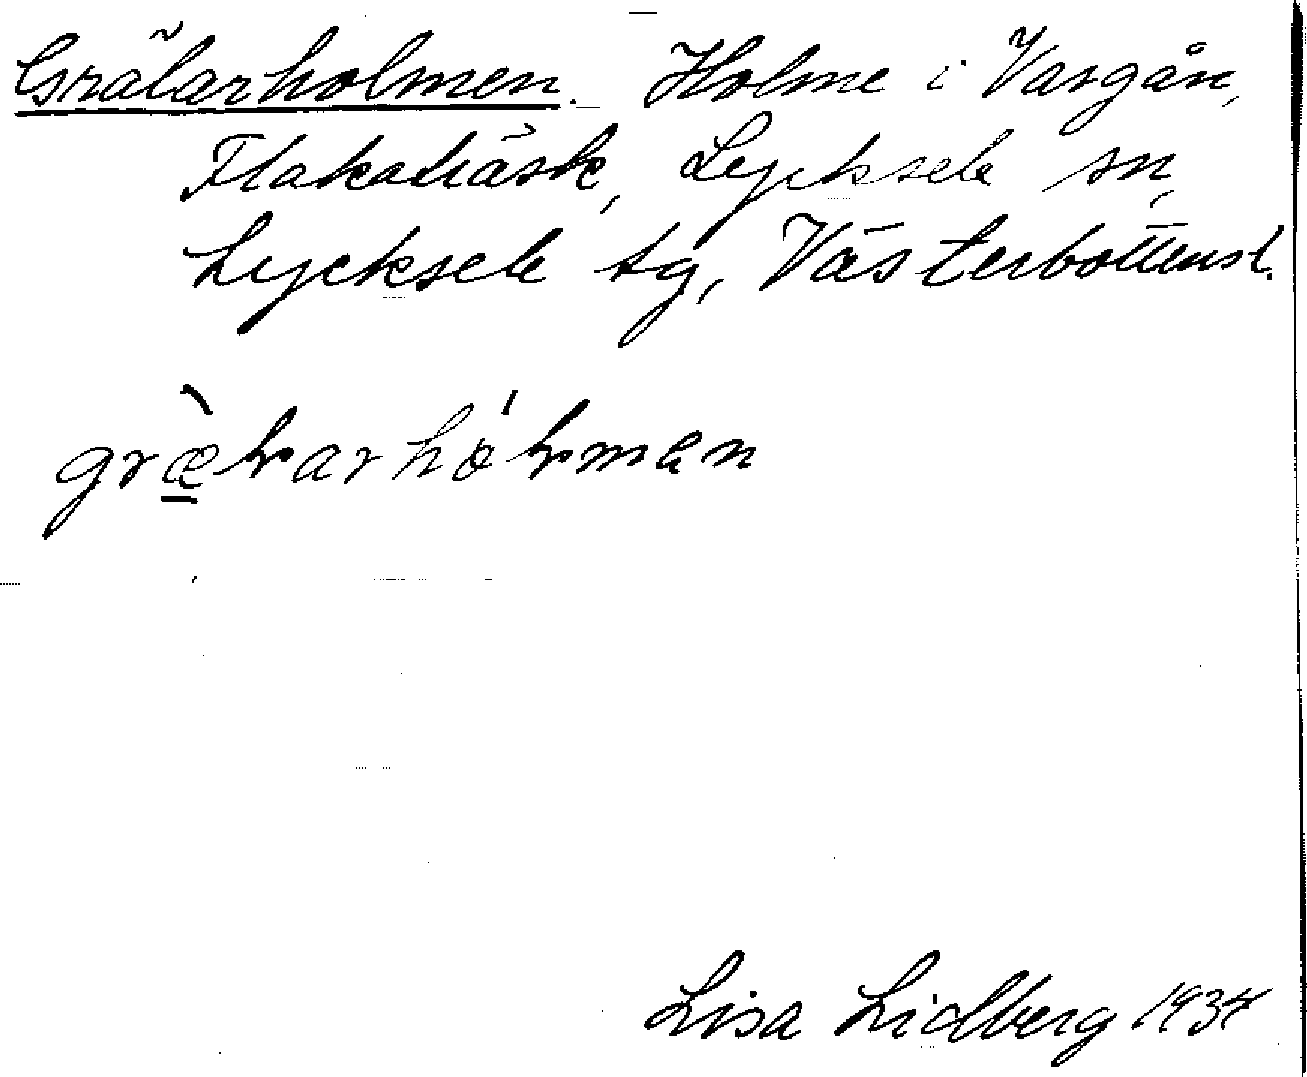 Grälarholmen. Holme i Vargån,
Flakaträsk, Lycksele sn,
Lycksele tg, Västerbottensl.
Lisa Lidberg 1934